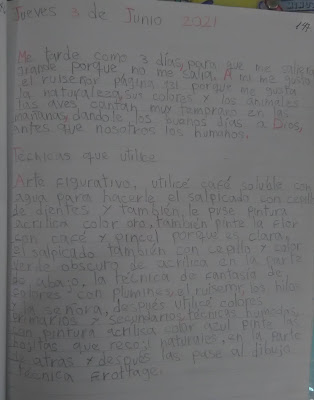 Jueves 3 de Junio 2021
Me tarde como 3 días, para que me saliera
grande porque no me salía, A mi me gusta
el ruiseñor página 31 porque me gusta
la naturaleza, sus colores y los animales
las aves, cantan muy temprano en las
mañanas, dandole los buenos días a Dios,
antes que nosotros los humanos.
Técnicas que utilice
Arte Figurativo, utilicé café soluble con
agua para hacerle el salpicado con cepillo
de dientes y también, le puse pintura
acrílica color oro, también pinte la flor
con café y pincel porque es clara,
el salpicado también con cepillo y color
verde obscuro de acrílica en la parte
de abajo, la técnica de fantasía de
colores con plumines, el ruiseñor, los
y la señora, después utilicé colores
primarios y secundarios, técnicas húmedas
con pintura acrílica color azul pinte las
ositas que, recogí naturales, en la parte
de atras y después las pase al dibujo
Técnica Frottage.